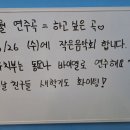 월 연주곡 = 하고 싶은 곡♡
/26 (수)에 작은음악회 합니다.
부는 동요나 바이엘로 연주해요
친구들 새학기도 화이팅!